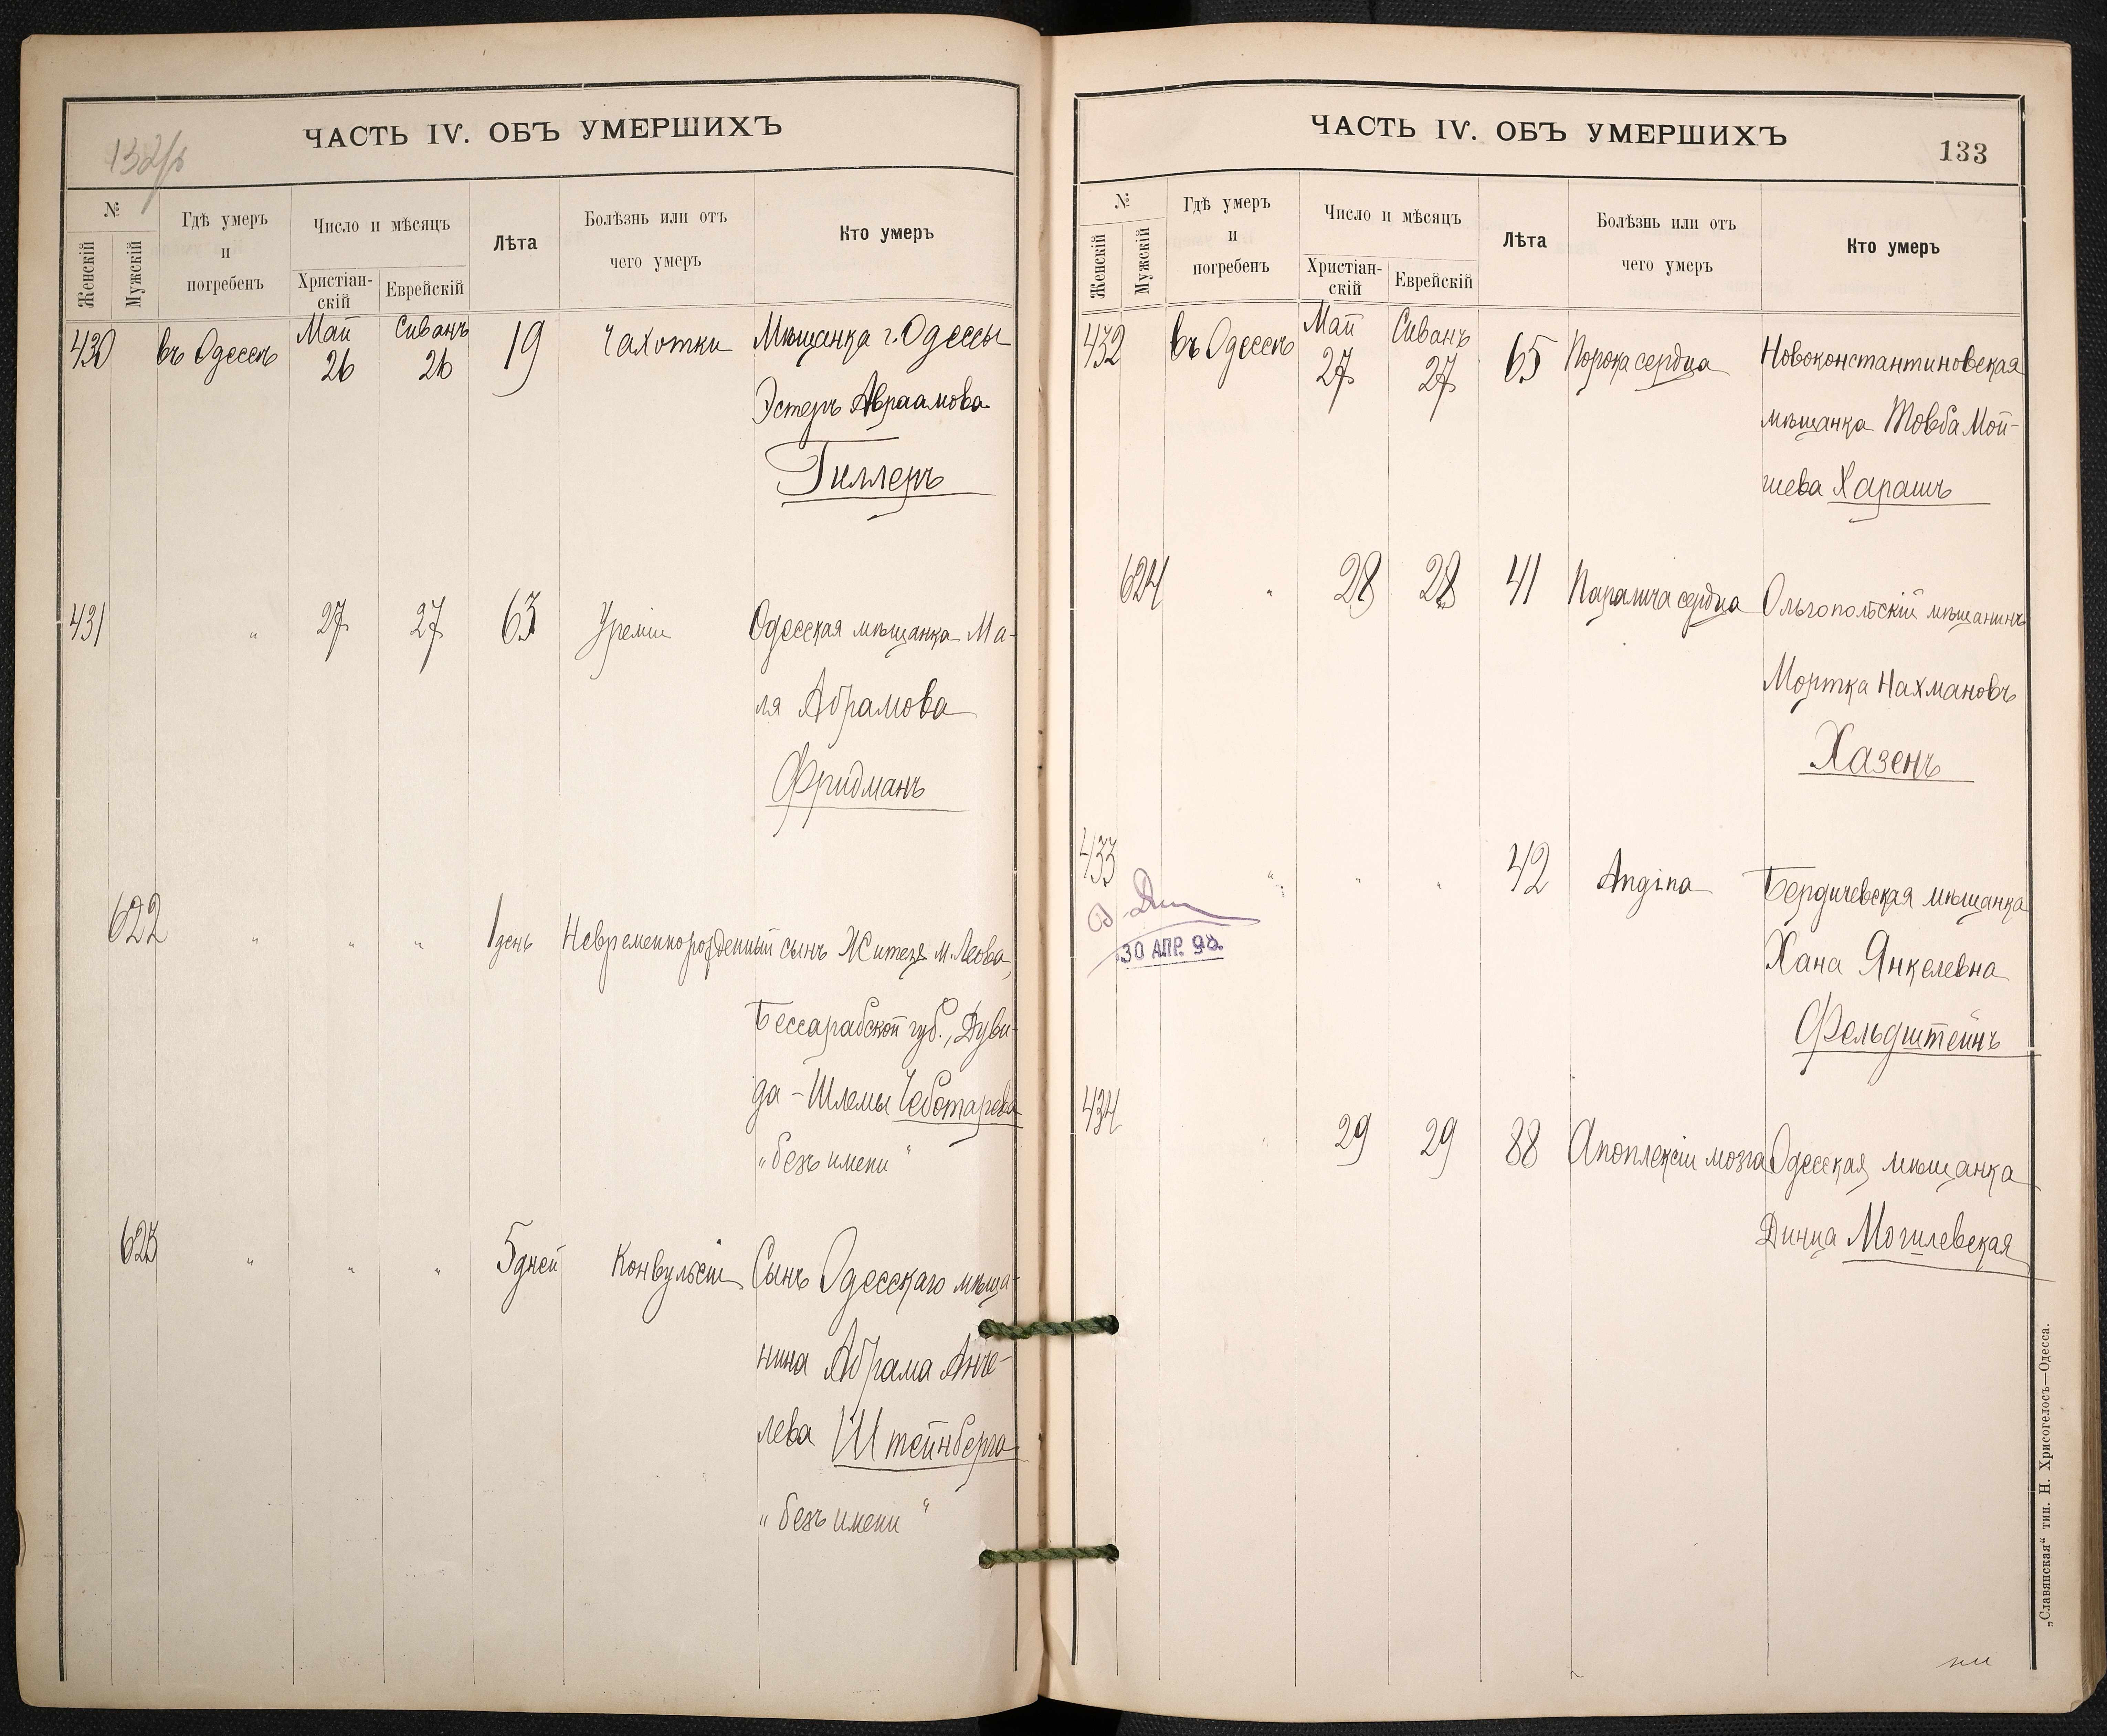 132/б
ЧАСТЬ IV. ОБЪ УМЕРШИХЪ
№
Женскій
Мужскій
Гдѣ умеръ
и
погребенъ
Число и мѣсяцъ
Христіан-
скій
Еврейскій
Лѣта
Болѣзнь или отъ
чего умеръ
Кто умеръ
430 въ Одессѣ Май 26 Сиванъ 26 19 Чахотки Мѣщанка г. Одессы
Эстеръ Авраамова
Гиллеръ
431 " 27 27 63 Уреміи Одесская мѣщанка Ма-
ля Абрамова
Фридманъ
622 " " " 1 день Невременнорожденный сынъ Жителя м. Леова,
Бессарабской губ., Дуви-
да-Шлемы Чеботарева
"безъ имени"
623 " " " 5 дней Конвульсіи Сынъ Одесскаго мѣща-
нина Абрама Анче-
лева Штейнберга
"безъ имени"
ЧАСТЬ IV. ОБЪ УМЕРШИХЪ
133
№
Женскій
Мужскій
Гдѣ умеръ
и
погребенъ
Число и мѣсяцъ
Христіан-
скій
Еврейскій
Лѣта
Болѣзнь или отъ
чего умеръ
Кто умеръ
432 въ Одессѣ Май 27 Сиванъ 27 65 Порока сердца Новоконстантиновская
мѣщанка Товба Мой-
шева Харашъ
624 " 28 28 41 Паралича сердца Ольгопольскій мѣщанинъ
Мортка Нахмановъ
Хазенъ
433 " " " 42 Angina Бердичевская мѣщанка
Хана Янкелевна
Фельдштейнъ
30 АПР. 98
434 " 29 29 88 Апоплексіи мозга Одесская мѣщанка
Динца Могилевская
„Славянская“ тип. Н. Хрисогелосъ—Одесса.